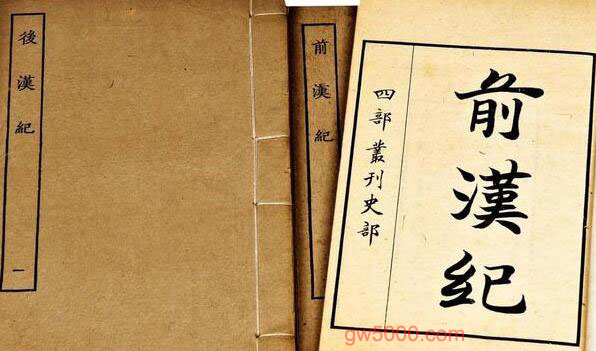 後漢紀
一
前漢紀
前漢紀
四部叢刊史部
gw5000.com